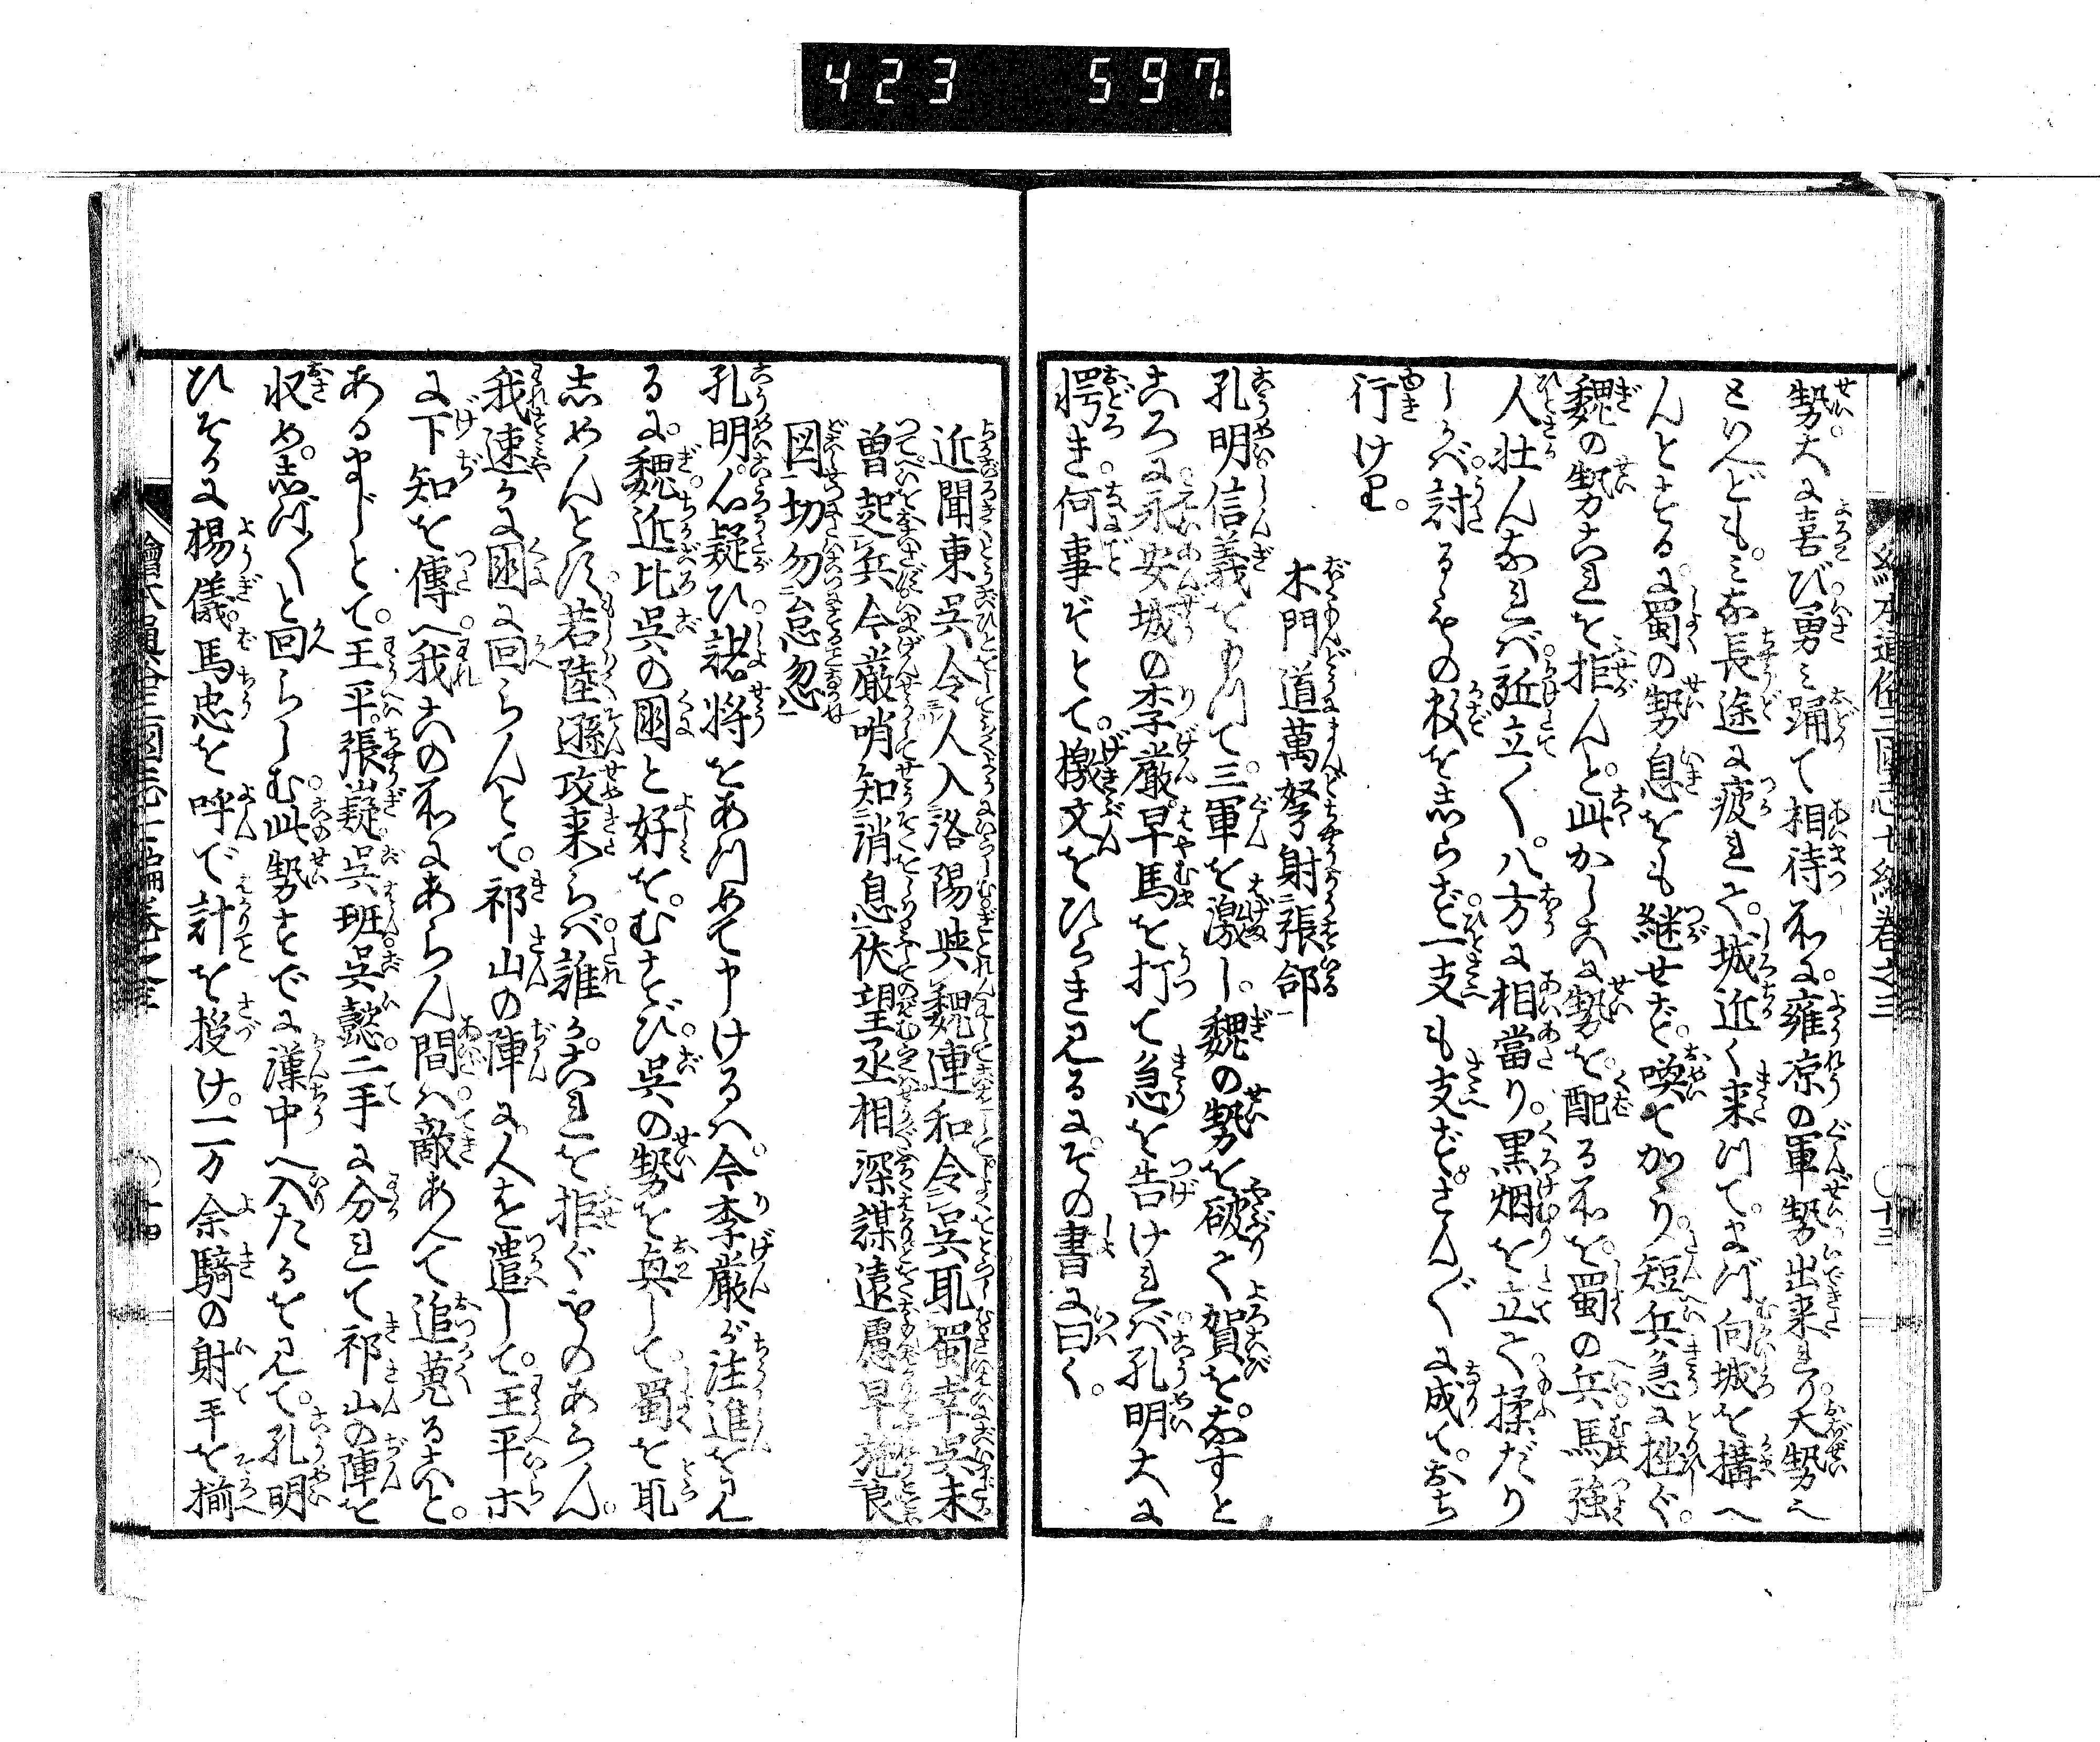 423 597
絵本通俗三国志七編巻之三 〇十三
勢大に喜び勇み踊て相待所に。雍凉の軍勢出来れり大勢之
といへども。みな長途に疲れて。城近く来つて。まづ向城を構へ
んとする。に蜀の勢息をも継せず。喚てかゝり。短兵急に挫ぐ。
魏の勢これを拒んと。此かしこに勢を。配る所を。蜀の兵馬強
人壮んなれば。近立〳〵。八方に相當り。黒烟を立て。揉だり
しかば。討るゝもの数をしらず。一支も支ず。さん〴〵に成て。おち
行けり。
木門道萬弩射張郃
孔明信義をもつて三軍を激し。魏の勢を破て賀をなすと
ころに。永安城の李厳。早馬を打て急を告ければ。孔明大に
愕き。何事ぞとて。檄文をひらき見るに。その書に曰く。
近聞東呉令人入洛陽與魏連和令呉取蜀幸呉未
曽起兵今厳哨知消息伏望丞相深謀遠慮早施良
図切勿怠忽
孔明心疑ひ。諸将をあつめて申けるハ。今李厳が注進を見
るに。魏近比呉の國と好を。むすび。呉の勢を興して。蜀を取
しめんとす。若陸遜攻来らば。誰かこれを拒ぐものあらん。
我速かに國に回らんとて。祁山の陣に。人を遣して。王平ホ
に下知を傳へ。我この所にあらん間ハ。敵あへて追蒐ること。
あるまじとて。王平。張嶷。呉班呉懿二手に分れて祁山の陣を
収め。しづ〳〵と回らしむ。此勢すでに漢中へ入たるを見て。孔明
ひそかに楊儀。馬忠を呼で計を授け。一万余騎の射手を揃
繪本通俗三國志七編巻之三 〇十四